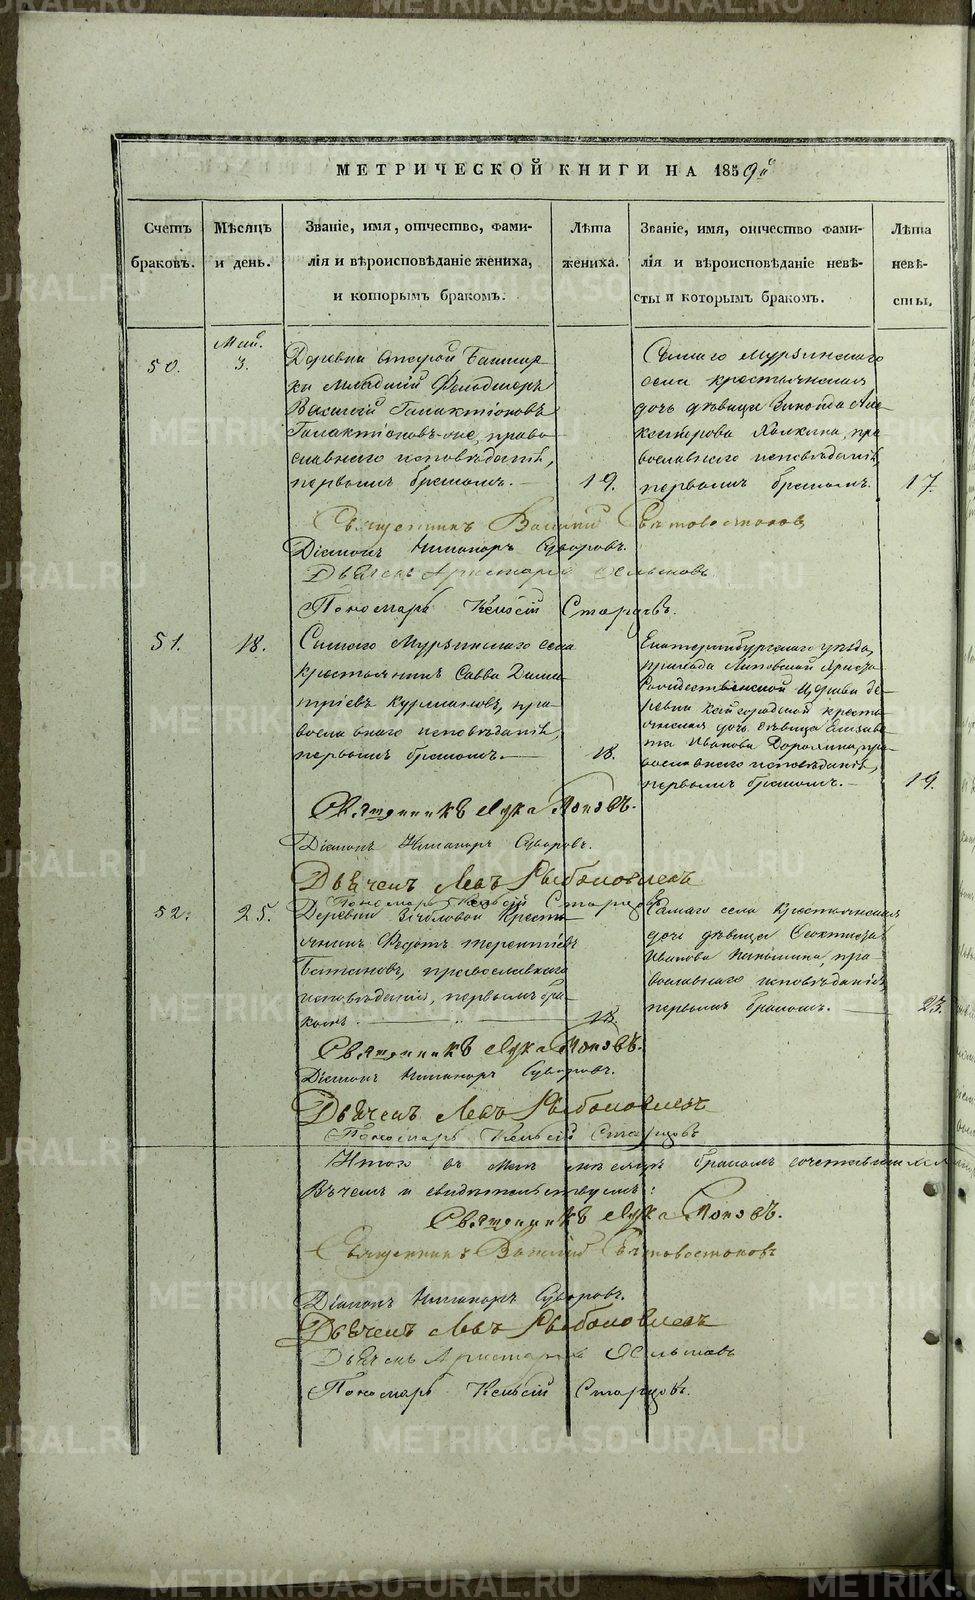 МЕТРИЧЕСКОЙ КНИГИ НА 1859й
Счетъ браковъ.
Мѣсяцъ и день.
Званіе, имя, отчество, фами-
лія и вѣроисповѣданіе жениха,
и которымъ бракомъ.
Лѣта жениха.
Званіе, имя, отчество фами-
лія и вѣроисповѣданіе невѣ-
сты и которымъ бракомъ.
Лѣта невѣ-
сты.
50.
Май.
3.
Деревни Старой Башкир
ки младшій Фельдшеръ
Василій Галактіоновъ
Галактіоновъ-же, право
славнаго исповѣданія,
первымъ бракомъ.
19.
Самаго Мурзинскаго
села крестьянская
дочь дѣвица
первымъ бракомъ.
17.
Священникъ Василій Святовостоковъ
Діаконъ Никаноръ Суворовъ.
Дьячекъ Аристархъ
Пономарь Старцовъ.
51.
18.
Самаго Мурзинскаго села
крестьянинъ Савва Дими
тріевъ пра
вославнаго исповѣданія,
первымъ бракомъ.
18.
Екатеринбургскаго уѣзда,
прихода Липовской Христо
рождественской Церкви де-
ревни кресть
янская дочь дѣвица Елизаве
та Иванова пра-
вославнаго исповѣданія,
первымъ бракомъ.
19.
Священникъ Лука Поповъ.
Діаконъ Никаноръ Суворовъ.
Дьячекъ Левъ Рыболовлевъ
Пономарь Старцовъ
52.
25.
Деревни Зыряновой кресть
янинъ Ѳедотъ Терентіевъ
Батановъ, православнаго
исповѣданія, первымъ бра
комъ.
18
Самаго села крестьянская
дочь дѣвица Ѳеоктиста
Иванова пра-
вославнаго исповѣданія
первымъ бракомъ.
23.
Священникъ Лука Поповъ.
Діаконъ Никаноръ Суворовъ.
Дьячекъ Левъ Рыболовлевъ
Пономарь Старцовъ
Итого въ Маѣ мѣсяцѣ бракомъ
Въ чемъ и свидѣтельствуемъ:
Священникъ Лука Поповъ.
Священникъ Василій Святовостоковъ
Діаконъ Никаноръ Суворовъ.
Дьячекъ Левъ Рыболовлевъ
Дьячекъ Аристархъ
Пономарь Старцовъ.
METRIKI.GASO-URAL.RU